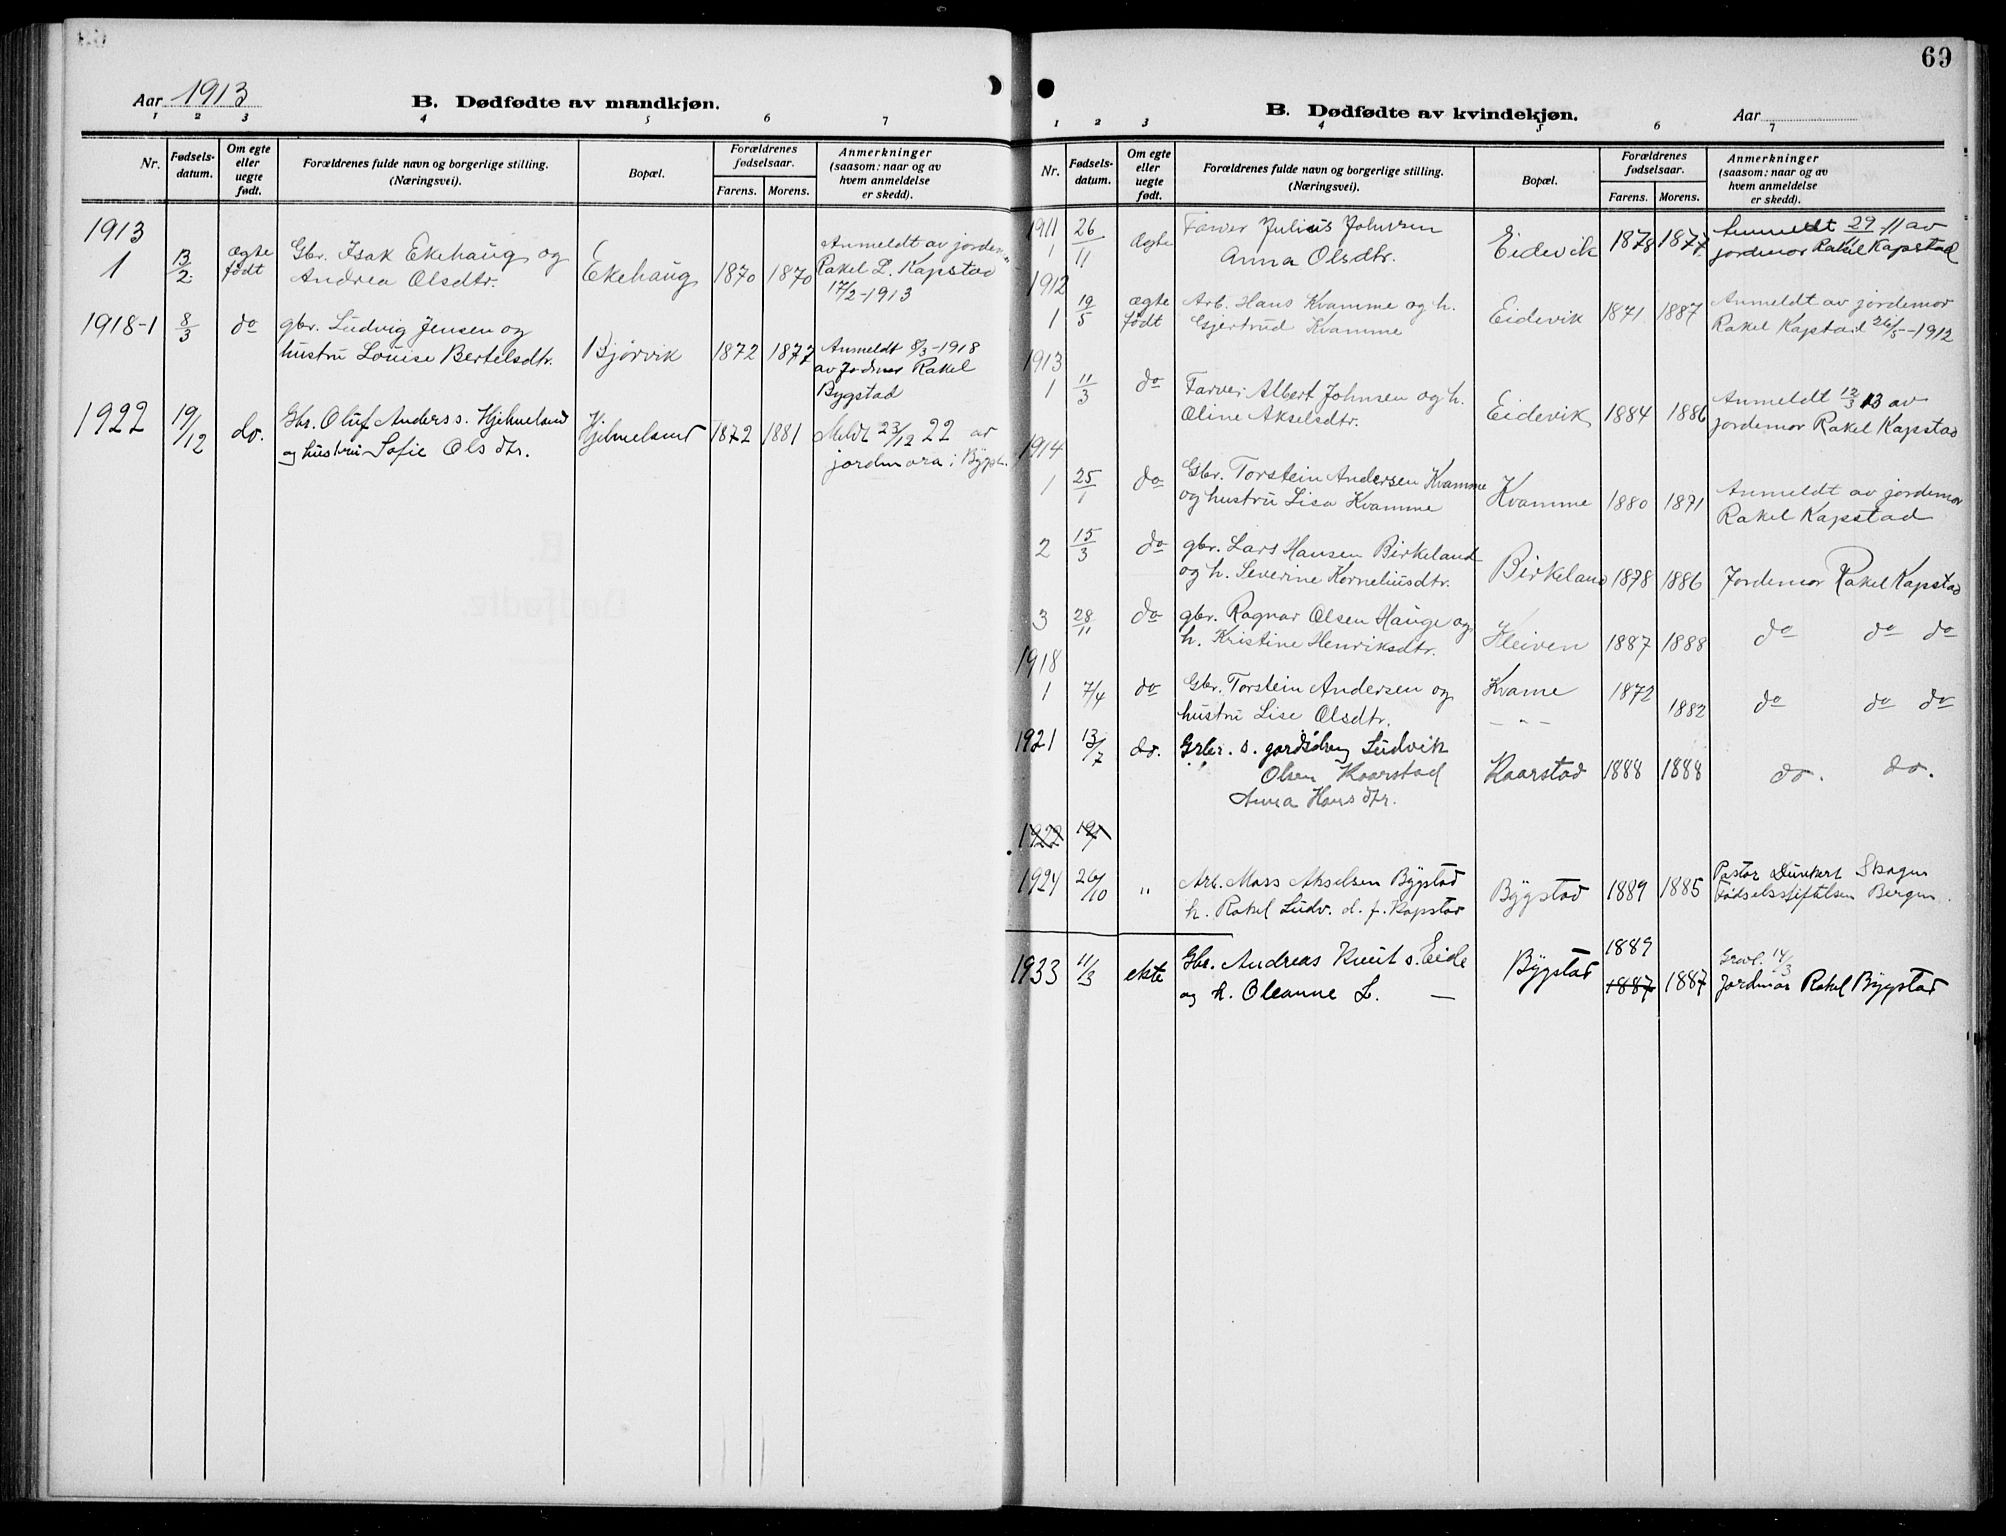 Aar 1913
B. Dødfødte av mandkjøn.
1 2 3 4 5 6 7
Nr.
Fødsels-datum.
Om egte eller uegte født.
Forældrenes fulde navn og borgerlige stilling. (Næringsvei).
Bopæl.
Forældrenes fødselsaar.
Farens. Morens.
Anmerkninger (saasom: naar og av hvem anmeldelse er skedd).
1913
1 13/2 ægte født Gbr. Isak Ekehaug og Ekehaug 1870 1870 Anmeldt av jordem.
Andrea Olsdtr. Rakel L. Kapstad
17/2-1913
1918-1 8/3 do gbr. Ludvig Jensen og Bjørvik 1872 1877 Anmeldt 8/3-1918
hustru Louise Bertelsdtr. av Jodmor Rakel
Bygstad
1922 19/12 do. Gbr. Oluf Anders s. Hjelmeland Hjelmeland 1872 1881 Meldt 23/12 22 av
og hustru Sofie Ols dtr. jordmora i Bygst.
69
B. Dødfødte av kvindekjøn.
Aar
1 2 3 4 5 6 7
Nr.
Fødsels-datum.
Om egte eller uegte født.
Forældrenes fulde navn og borgerlige stilling. (Næringsvei).
Bopæl.
Forældrenes fødselsaar.
Farens. Morens.
Anmerkninger (saasom: naar og av hvem anmeldelse er skedd).
1911
1 26/11 ægte Farver Julius Johnsen Eidevik 1878 1877 Anmeldt 29-11 av
Anna Olsdtr. jordemor Rakel Kapstad
1912
1 19/5 ægte født Arb. Hans Kvamme og h. Eidevik 1871 1887 Anmeldt av jordemor
Gjertrud Kvamme Rakel Kapstad 26/5-1912
1913
1 11/3 do Farver Albert Johnsen og h. Eidevik 1884 1886 Anmeldt 12/3 13 av
Oline Akselsdtr. jordemor Rakel Kapstad
1914
1 25/1 do Gbr. Torstein Andersen Kvamme Kvamme 1880 1871 Anmeldt av jordemor
og hustru Lisa Kvamme Rakel Kapstad
2 15/3 do gbr. Lars Hansen Birkeland Birkeland 1878 1886 Jordemor Rakel Kapstad
og h. Severine Korneliusdtr.
3 28/11 do gbr. Ragnar Olsen Hauge og Kleiven 1887 1888 do do do
h. Kristine Henriksdtr.
1918
1 7/4 do Gbr. Torstein Andersen og Kvame 1872 1882 do do do
hustru Lise Olsdtr. - " -
1921 13/7 do. Grbr. s. Ludvik Kaarstad 1888 1888 do. do.
Olsen Kaarstad
Anna Hans dtr.
1922
1924 26/10 " Arb. Mass Akselsen Bygstad Bygstad 1889 1885 Pastor Dunkert Skogen
h. Rakel Ludv. d. f. Kapstad Fødselsstiftelsen Bergen.
1933 11/3 ekte Gbr. Andreas Knut s. Eide Bygstad 1889 1887 1887 Gravl. 14/3
og h. Oleanne L. — Jordmor Rakel Bygstad